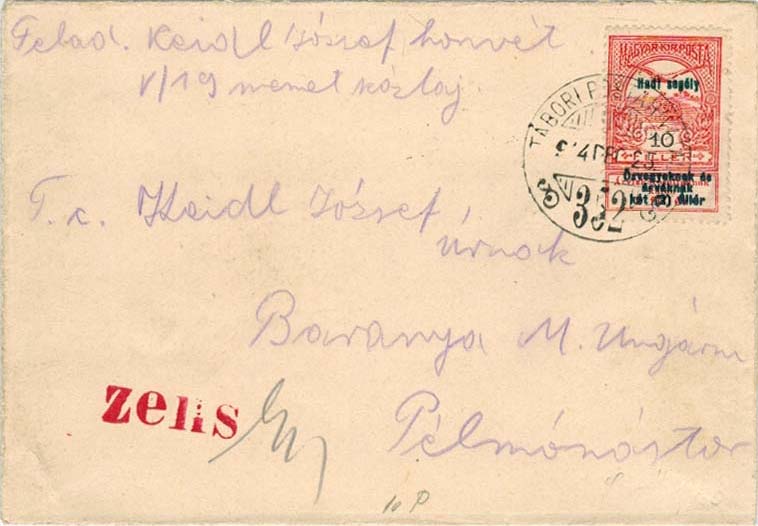 Felad. Keidl József honvét
V/19 menet közlaj
MAGYAR KIR. POSTA
Hadi segély
10
FILLÉR
Özvegyeknek és
árváknak
két (2) fillér
TÁBORI POSTA
914 DEC 25
352
T. c. Keidl József
úrnak
Baranya M. Ungárn
Pélmónástor
zens
10 P